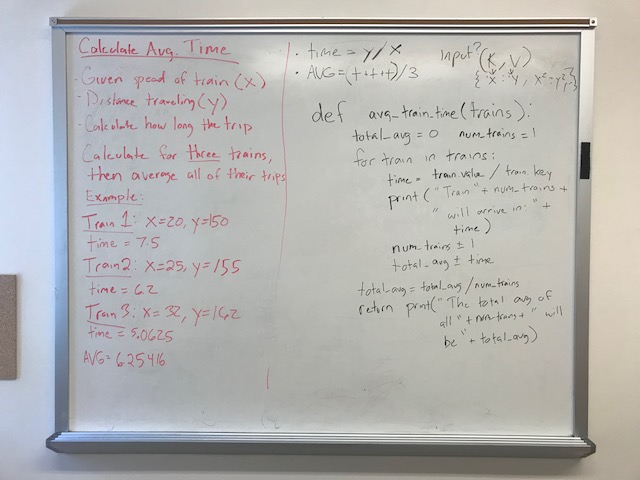 Calculate Avg. Time
- Given speed of train (X)
- Distance traveling (Y)
- Calculate how long the trip
Calculate for three trains,
then average all of their trips
Example:
Train 1: X=20, y=150
time = 7.5
Train 2: X=25, y=155
time = 6.2
Train 3: X= 32, y=162
time = 5.0625
AVG= 6.25416
• time = y/x
• AVG=(t+t+t)/3
input? (K, V)
{ X : Y, X²=y²,
def avg_train_time(trains):
total_avg = 0 num_trains = 1
for train in trains:
time = train.value / train.key
print ("Train " + num_trains +
" will arrive in: " +
time)
num_trains ± 1
total_avg ± time
total_avg = total_avg / num_trains
return print("The total avg of
all " + num_trains + " will
be " + total_avg)